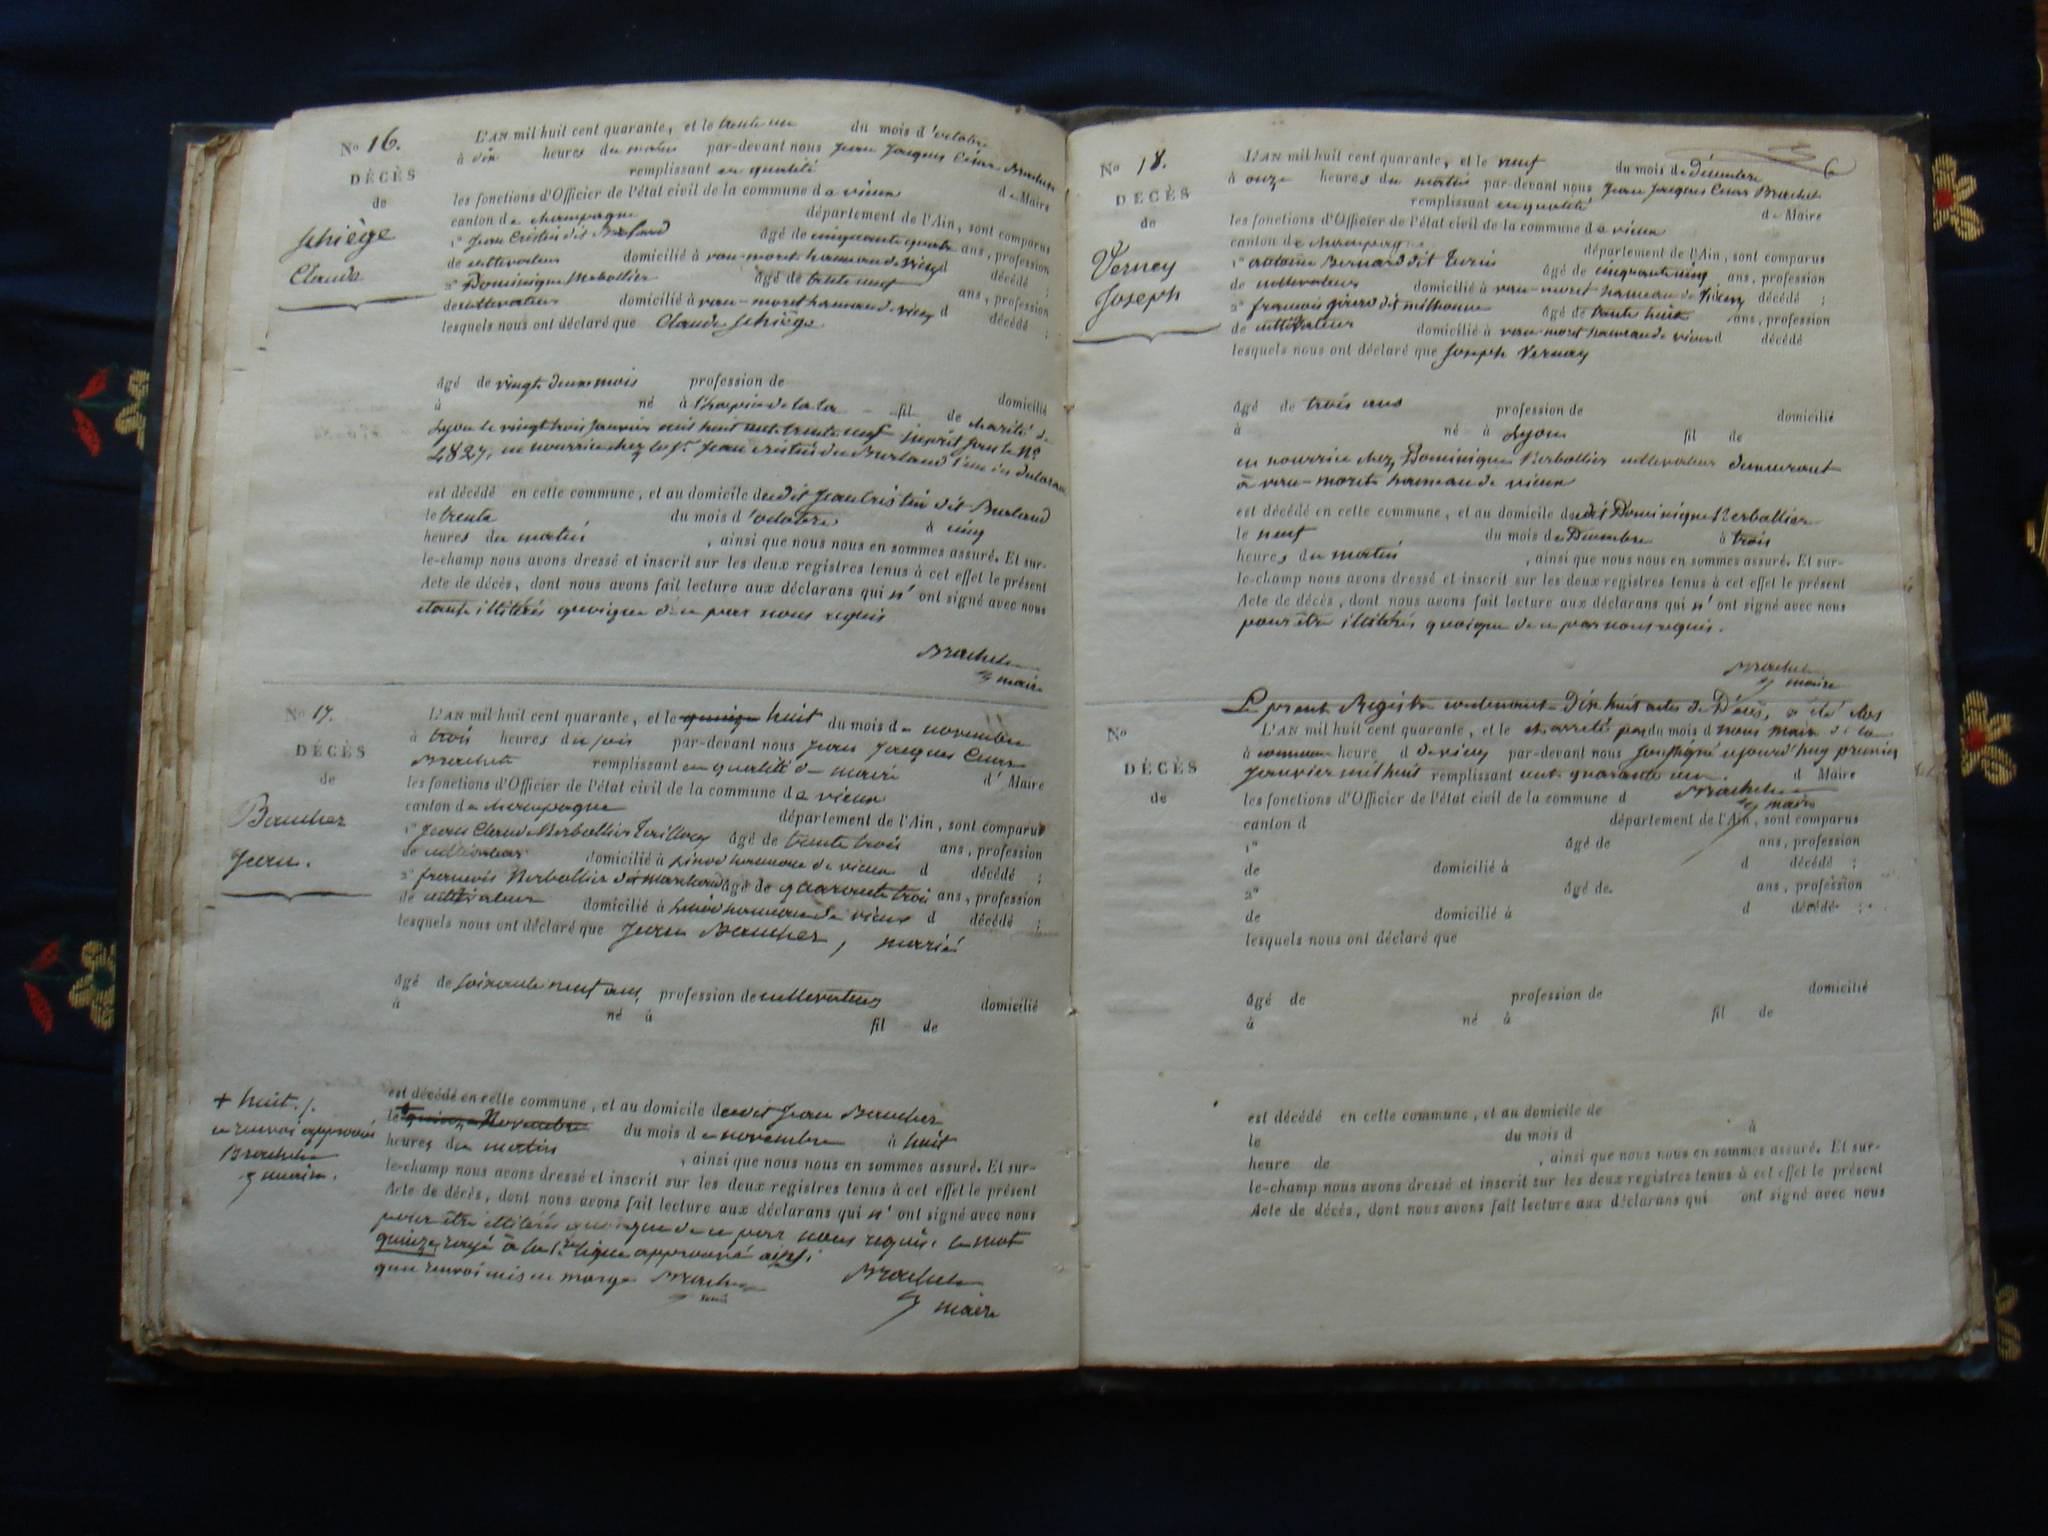 No 16.
DÉCÈS
de
Schiège
Claude
L'AN mil huit cent quarante, et le trente un du mois d'octobre
à dix heures du matin par-devant nous Jean Jacques César Brachet
remplissant en qualité d e Maire
les fonctions d'Officier de l'état civil de la commune de vieux
canton de champagne département de l'Ain, sont comparus
1° Jean Cristin dit âgé de cinquante quatre ans, profession
de cultivateur domicilié à vau-moret hameau de vieu d décédé ;
2° Dominique Berbollier âgé de trente neuf ans, profession
de cultivateur domicilié à vau-moret hameau de vieu d décédé ;
lesquels nous ont déclaré que Claude Schiège
âgé de vingt deux mois profession de domicilié
à né à l'hospice de la fil de charité de
Lyon le vingt trois janvier mil huit cent trente neuf inscrit sous le N°
4827, en nourrice chez le Sr. Jean Cristin dit Burland l'un des
est décédé en cette commune, et au domicile dudit Jean Cristin dit Burland
le trente du mois d'octobre à cinq
heures du matin , ainsi que nous nous en sommes assuré. Et sur-
le-champ nous avons dressé et inscrit sur les deux registres tenus à cet effet le présent
Acte de décès, dont nous avons fait lecture aux déclarans qui n'ont signé avec nous
étant illitérés quoique de ce par nous requis
Brachet
maire
No 17.
DÉCÈS
de
Baucher
Jean.
L'AN mil huit cent quarante, et le quinze huit du mois de novembre
à trois heures du soir par-devant nous Jean Jacques César
Brachet remplissant en qualité de maire d' Maire
les fonctions d'Officier de l'état civil de la commune de vieux
canton de champagne département de l'Ain, sont comparus
1° Jean Claude Berbollier âgé de trente trois ans, profession
de cultivateur domicilié à hameau de vieux d décédé ;
2° francois Berbollier dit marchand âgé de quarante trois ans, profession
de cultivateur domicilié à hameau de vieux d décédé ;
lesquels nous ont déclaré que Jean Baucher, marié
âgé de soixante neuf ans, profession de cultivateur domicilié
à né à fil de
est décédé en cette commune, et au domicile dudit Jean Baucher
le + quinze Novembre du mois de novembre à huit
heures du matin , ainsi que nous nous en sommes assuré. Et sur-
le-champ nous avons dressé et inscrit sur les deux registres tenus à cet effet le présent
Acte de décès, dont nous avons fait lecture aux déclarans qui n'ont signé avec nous
pour être illitérés quoique de ce par nous requis. le mot
quinze rayé à la 1re ligne approuvé ainsi
que renvoi mis en marge Brachet
maire
Brachet
maire
+ huit ./.
ce renvoi approuvé
Brachet
maire.
6
No 18.
DÉCÈS
de
Verney
Joseph
L'AN mil huit cent quarante, et le neuf du mois de Décembre
à onze heures du matin par-devant nous Jean Jacques César Brachet
remplissant en qualité d e Maire
les fonctions d'Officier de l'état civil de la commune de vieux
canton de champagne département de l'Ain, sont comparus
1° antoine Bernard dit Turin âgé de cinquante cinq ans, profession
de cultivateur domicilié à vau-moret hameau de vieu décédé ;
2° francois girerd dit milhomme âgé de trente huit ans, profession
de cultivateur domicilié à vau-moret hameau de vieu d décédé
lesquels nous ont déclaré que Joseph Vernay
âgé de trois ans profession de domicilié
à né à Lyon fil de
en nourrice chez Dominique Berbollier cultivateur demeurant
à vau-moret hameau de vieux
est décédé en cette commune, et au domicile dudit Dominique Berbollier
le neuf du mois de Décembre à trois
heures du matin , ainsi que nous nous en sommes assuré. Et sur-
le-champ nous avons dressé et inscrit sur les deux registres tenus à cet effet le présent
Acte de décès, dont nous avons fait lecture aux déclarans qui n'ont signé avec nous
pour être illitérés quoique de ce par nous requis.
Brachet
maire
Le présent Registre contenant Dix huit actes de Décès, a été clos
No
DÉCÈS
de
L'AN mil huit cent quarante, et le et arrêté par du mois d nous maire de la
à commune heure d de vieu par-devant nous soussigné aujourd'huy premier
janvier mil huit remplissant cent quarante un. d Maire
les fonctions d'Officier de l'état civil de la commune d Brachet
maire
canton d département de l'Ain, sont comparus
1° âgé de ans, profession
de domicilié à d décédé ;
2° âgé de ans, profession
de domicilié à d décédé ;
lesquels nous ont déclaré que
âgé de profession de domicilié
à né à fil de
est décédé en cette commune, et au domicile de
le du mois d à
heure de , ainsi que nous nous en sommes assuré. Et sur-
le-champ nous avons dressé et inscrit sur les deux registres tenus à cet effet le présent
Acte de décès, dont nous avons fait lecture aux déclarans qui ont signé avec nous